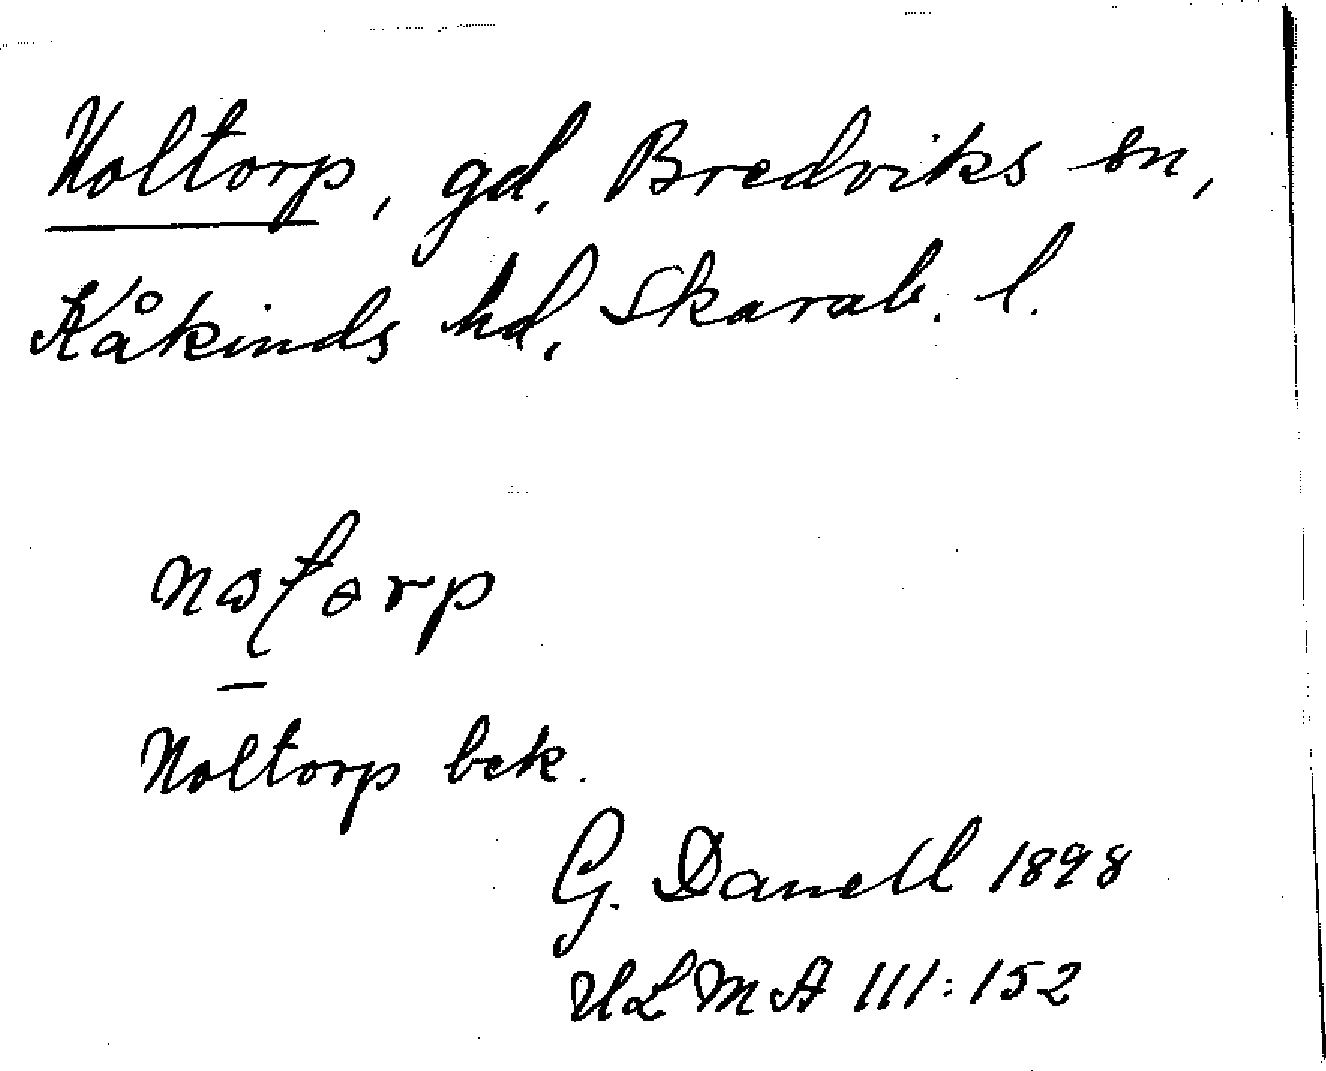 Noltorp, gd, Bredviks sn,
Kåkinds hd, Skarab. l.
Noltorp bek.
G. Danell 1898
ULMA 111:152